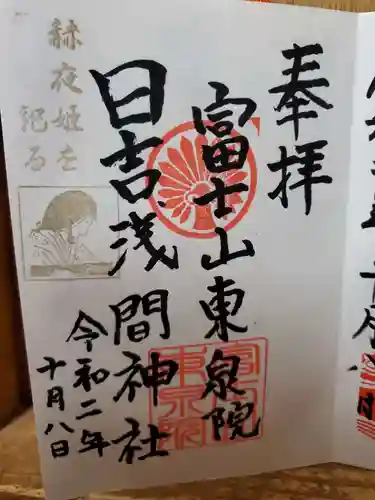 奉拝
富士山東泉院
日吉浅間神社
令和二年
十月八日
赫夜姫を
祀る